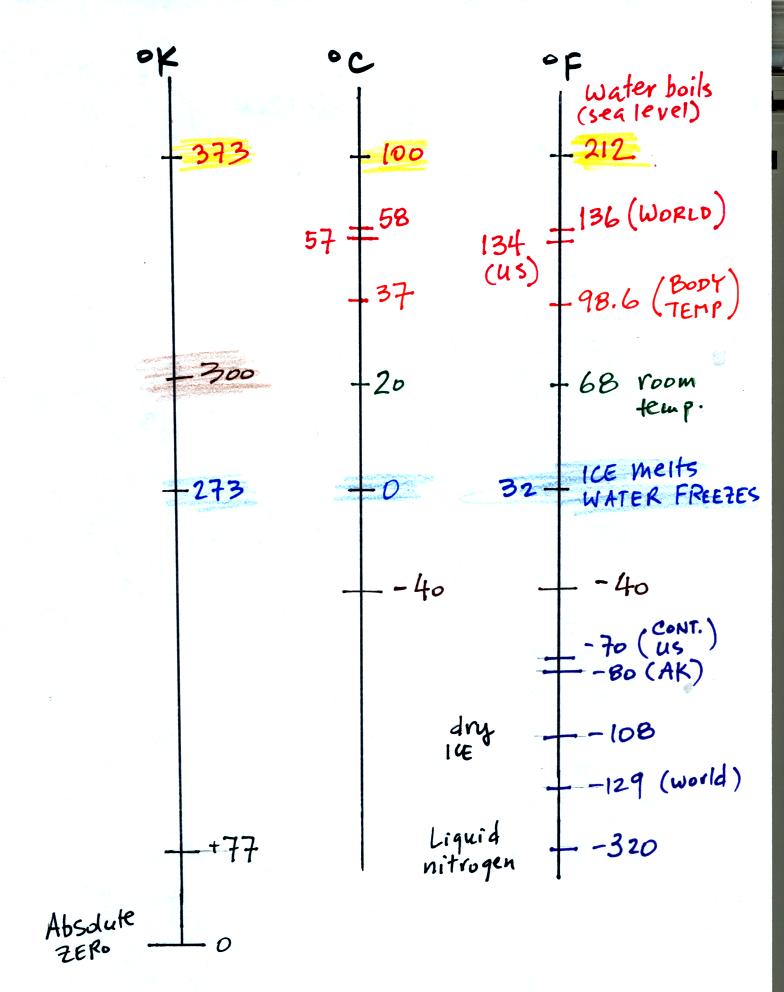 °K °C °F
water boils
(sea level)
373 100 212
58 136 (WORLD)
57 134
(US)
37 98.6 (BODY
TEMP)
300 20 68 room
temp.
273 0 32 ICE melts
WATER FREEZES
-40 -40
-70 (CONT.
US)
-80 (AK)
dry
ICE -108
-129 (world)
+77 Liquid
nitrogen -320
Absolute
ZERO 0